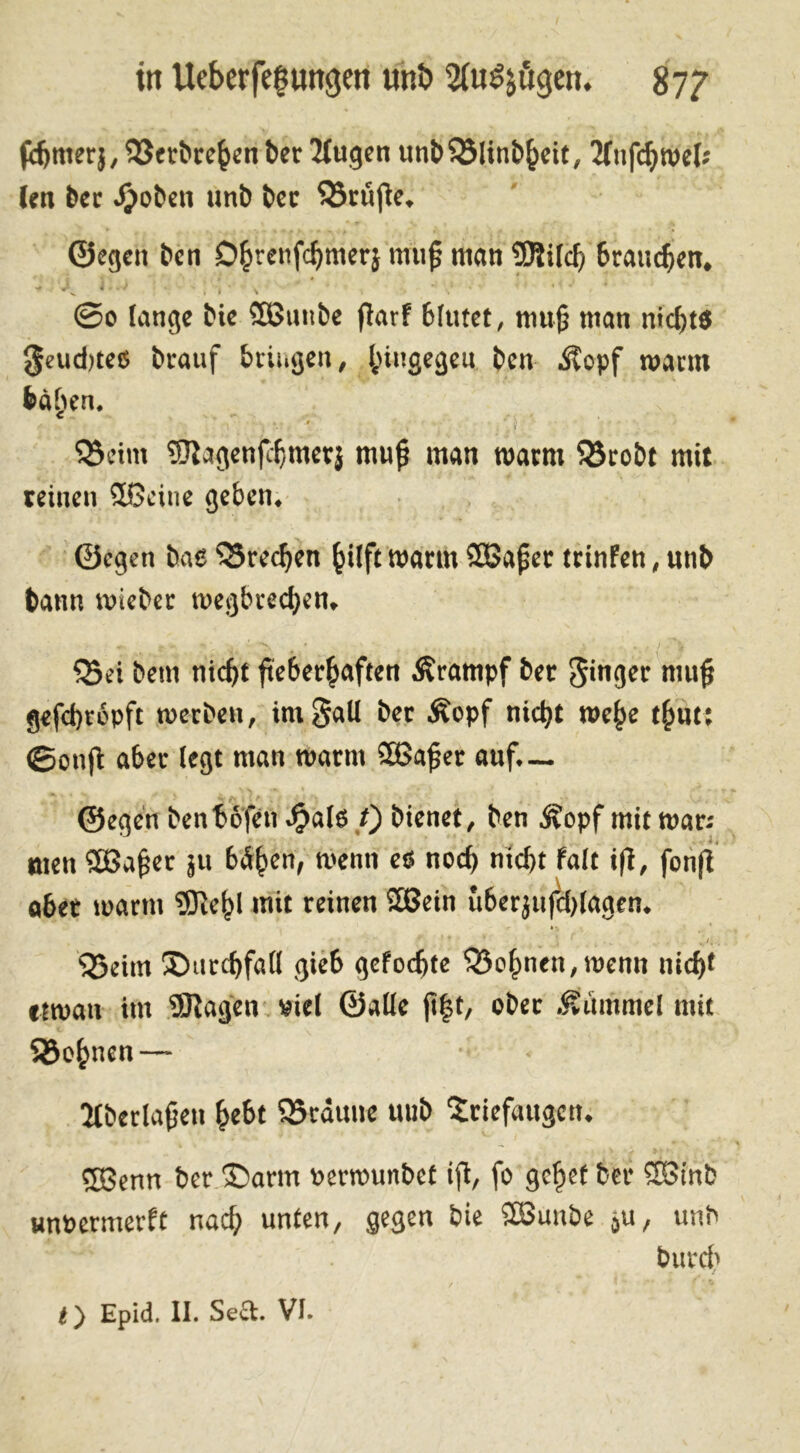 in Ueberſetzungen und Auszügen. 877
ſchmerz, Verdrehen der Augen und Blindheit, Anſchwel-
len der Hoden und der Brüſte.
Gegen den Ohrenſchmerz muß man Milch brauchen.
So lange die Wunde ſtark blutet, muß man nichts
Feuchtes drauf bringen, hingegeu den Kopf warm
bähen.
Beim Magenſchmerz muß man warm Brodt mit
reinen Weine geben.
Gegen das Brechen hilft warm Waßer trinken, und
dann wieder wegbrechen.
Bei dem nicht fieberhaften Krampf der Finger muß
geſchröpft werden, im Fall der Kopf nicht wehe thut;
Sonſt aber legt man warm Waßer auf.—
Gegen den böſen Hals t) dienet, den Kopf mit war-
men Waßer zu bähen, wenn es noch nicht kalt iſt, ſonſt
aber warm Mehl mit reinen Wein überzuſchlagen.
Beim Durchfall gieb gekochte Bohnen, wenn nicht
etwan im Magen viel Galle ſitzt, oder Kümmel mit
Bohnen —
Aderlaßen hebt Bräune und Triefaugen.
Wenn der Darm verwundet iſt, ſo gehet der Wind
unvermerkt nach unten, gegen die Wunde zu, und
durch
t) Epid. II. Sect. VI.